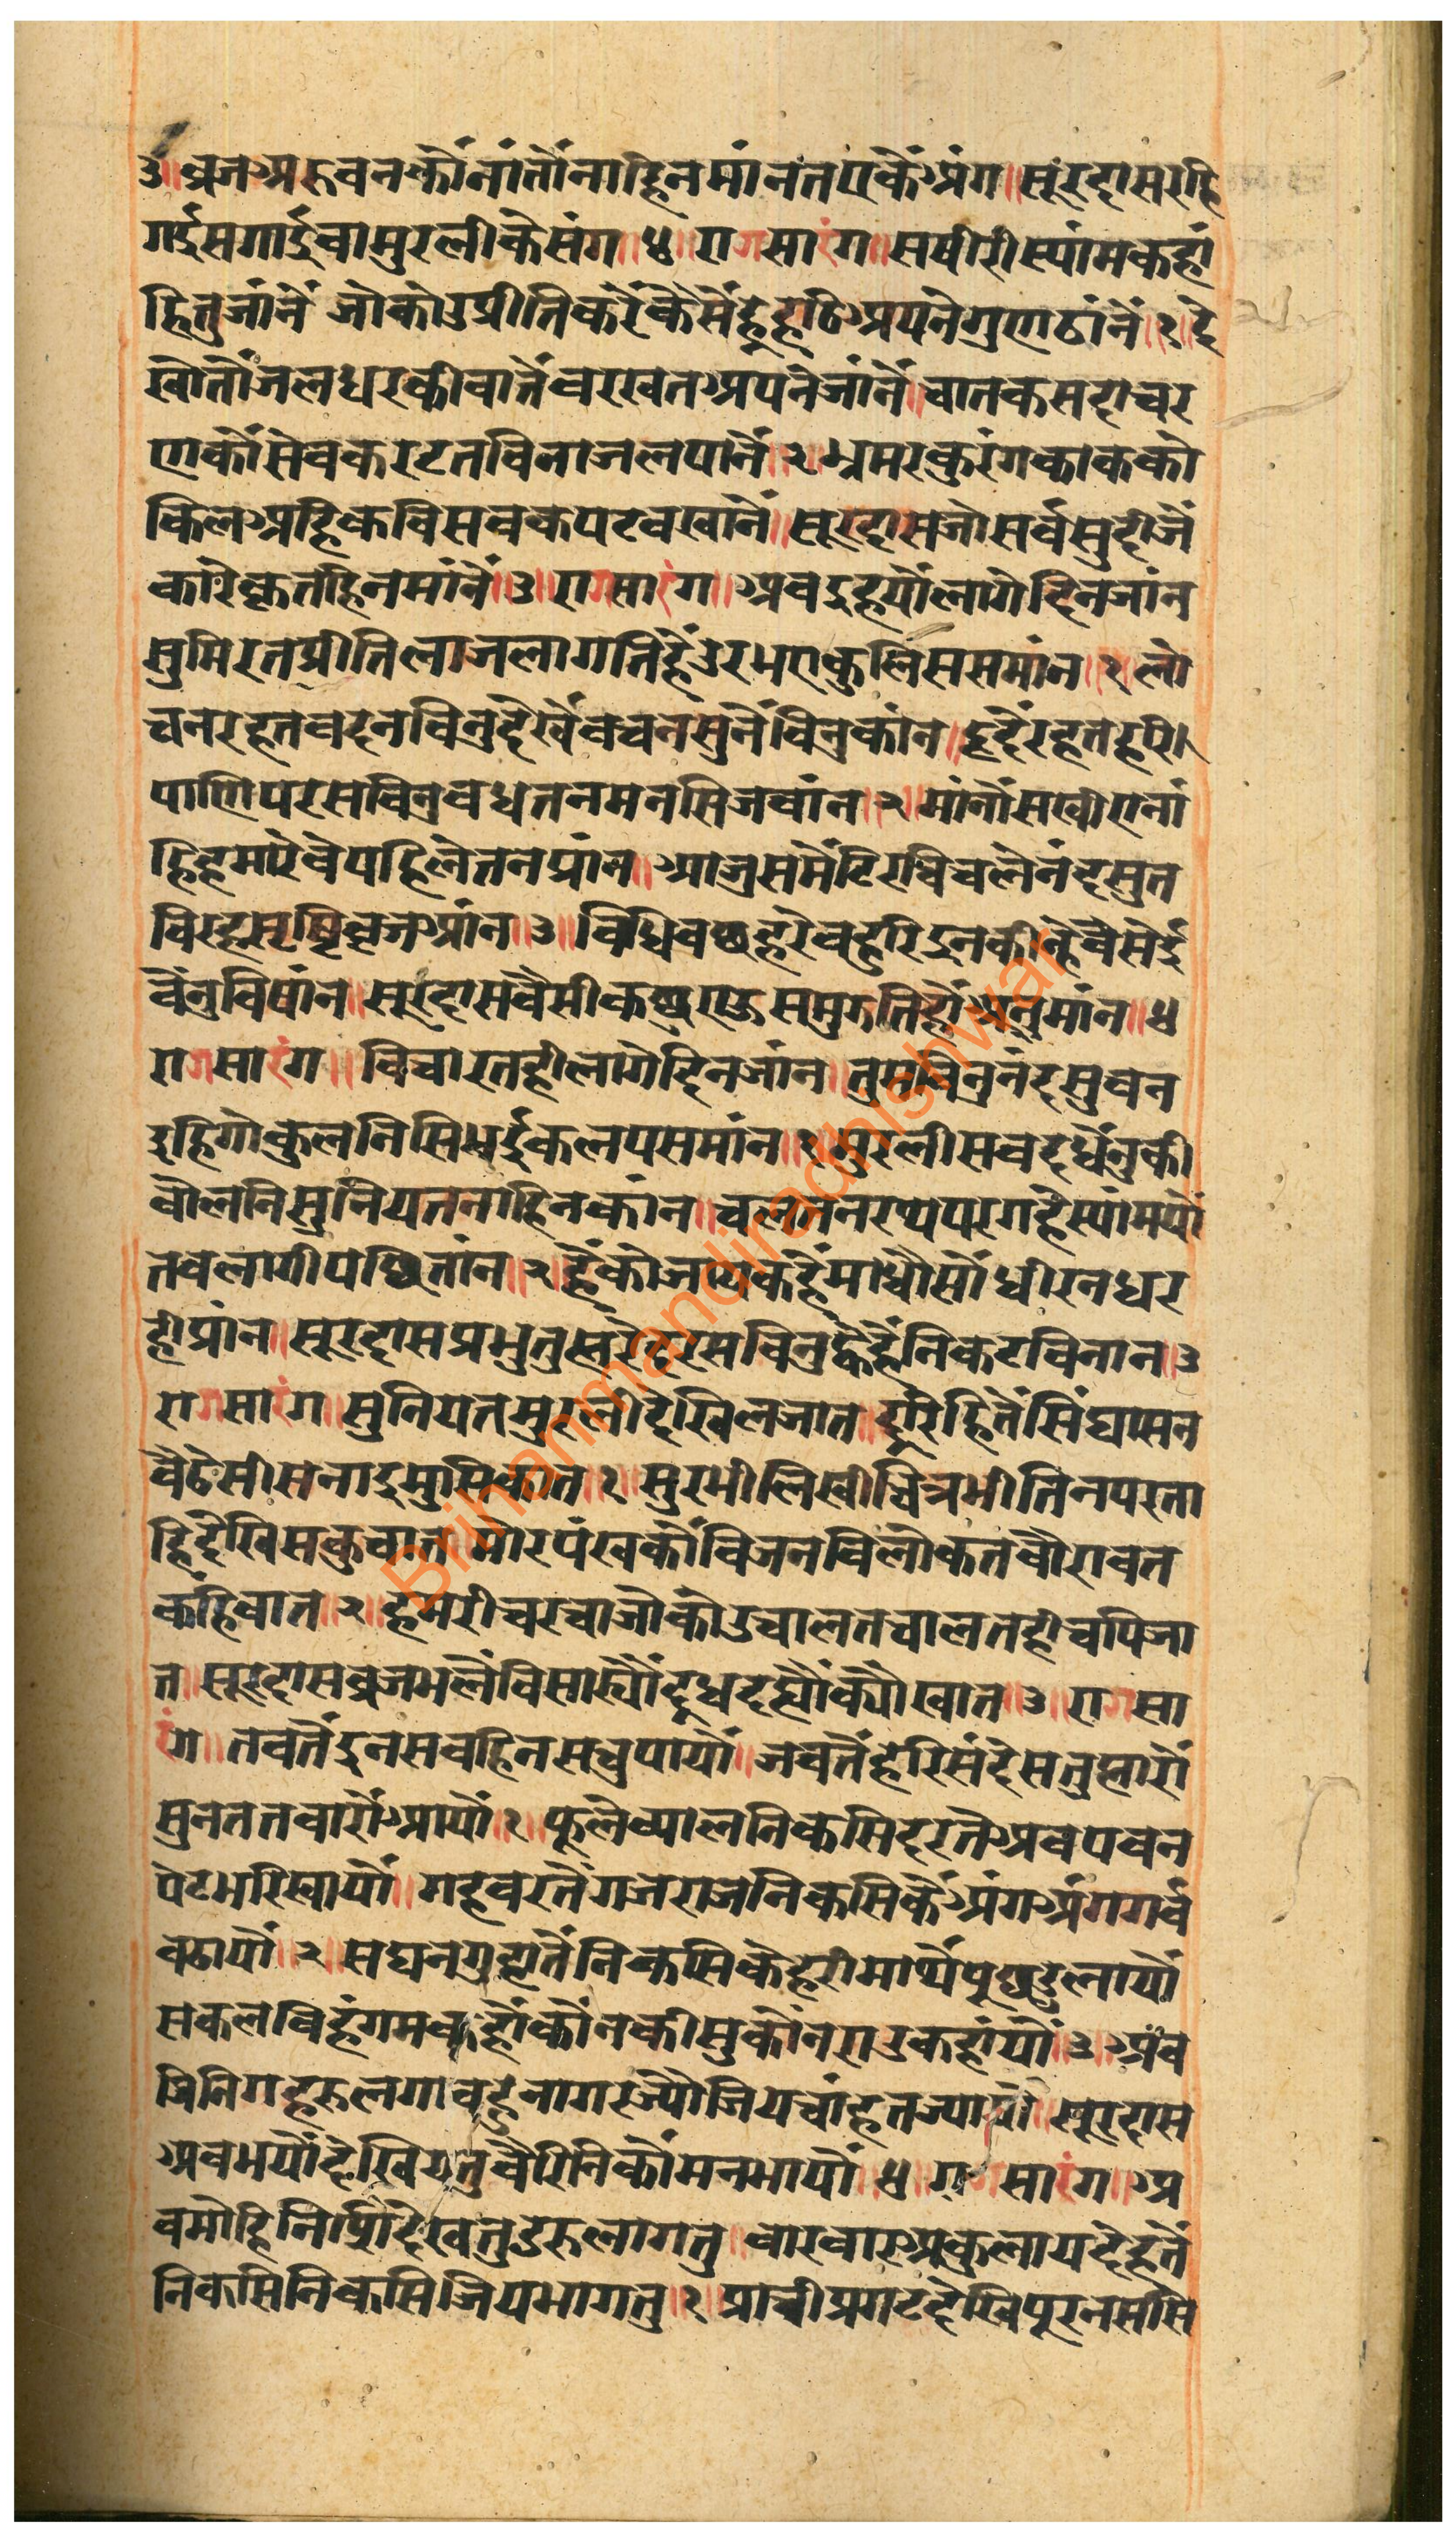 ३॥ब्रजअरुवनकौंनांतौंनाहिनमांनतएकैंअंग॥सूरदासरहि
गईसगाईवामुरलीकेसंग॥४॥रागसारंग॥सषीरीस्यांमकहां
हितुजांनें जोकोउप्रीतिकरेंकेसैंहूहठिअपनेगुणठांनें॥१॥दे
खोतौंजलधरकीबातेंवरखतअपनेजांनें॥चातकसदाचर
णकौंसेवकरटतविनाजलपानें॥२॥भ्रमरकुरंगकाकको
किलअहिकविसबकपटवखानें॥सूरदासजोसर्वसुदीजें
कारेकृतहिनमांनें॥३॥रागसारंग॥अबइहर्योंलागेदिनजांन
सुमिरतप्रीतिलाजलागतिहैंउरभएकुलिससमांन॥१॥लो
चनरहतवदनविनुदेखेंवचनसुनेंविनुकांन॥हृदेंरहतहरि
पाणिपरसविनुवधतनमनसिजवांन॥२॥मांनौंसखीएनां
हिहमारेवेपहिलेतनप्रांन॥आजुसमेंटिरचिचलेनंदसुत
विरहसृष्टिवृजआंन॥३॥विधिवछहरेवहुरिइनकीन्हेवेसेई
वेंनुविषांन॥सूरदासवैसीकछुएऊसमुगतिहोंअनुमांन॥४
रागसारंग॥विचारतहीलागेदिनजांन॥तुमविनुनंदसुवन
इहिगोकुलनिसिभईकलपसमांन॥१॥मुरलीसवदधेंनुकी
वोलनिसुनियतनाहिनकांन॥चलतनरथपरगहेस्यांमयों
तवलागीपछितांन॥२॥हैंकोजायकहेंमाधौसौंधीरनधर
हीप्रांन॥सूरदासप्रभुतुम्हरेदरसविनुह्वैहैंनिकटविनान॥३
रागसारंग॥सुनियतमुरलीदेखिलजात॥दूरिहितेंसिंघासन
वैठेसीसनाइमुसिकात॥१॥सुरभीलिखीचित्रभीतिनपरता
हिदेखिसकुचात॥मोरपंखकौंविजनविलोकतवौरावत
कहिवात॥२॥हमरीचरचाजोकोउचालतचालतहीचपिजा
त॥सूरदासव्रजभलेंविसार्यौंदूधदह्यौंक्यौंखात॥३॥रागसा
रंग॥तवतेंइनसवहिनसचुपायौं॥जवतेंहरिसंदेसतुम्हारौं
सुनतततवारौंआयौं॥१॥फूलेव्यालनिकसिदरतेंअवपवन
पेटभरिखायौं॥गहवरतेंगजराजनिकसिकेंअंगअंगगर्व
वढायौं॥२॥सघनगुहातेंनिकसिकेहरीमाथेंपूछडुलायौं
सकलविहंगमकहौंकौंनकीसुकौंनराउकहांयौं॥३॥अव
जिनिगहरुलगावहुनागरज्यौजियचांहतज्यायौ॥सूरदास
अवभयौंदेखियतुवैरिनिकौंमनभायौं॥४॥रागसारंग॥अ
वमोहिनिशिदेखतुडरुलागतु॥वारवारअकुलायदेहतें
निकसिनिकसिजियभागतु॥१॥प्राचीप्रगटदेखिपूरनससि